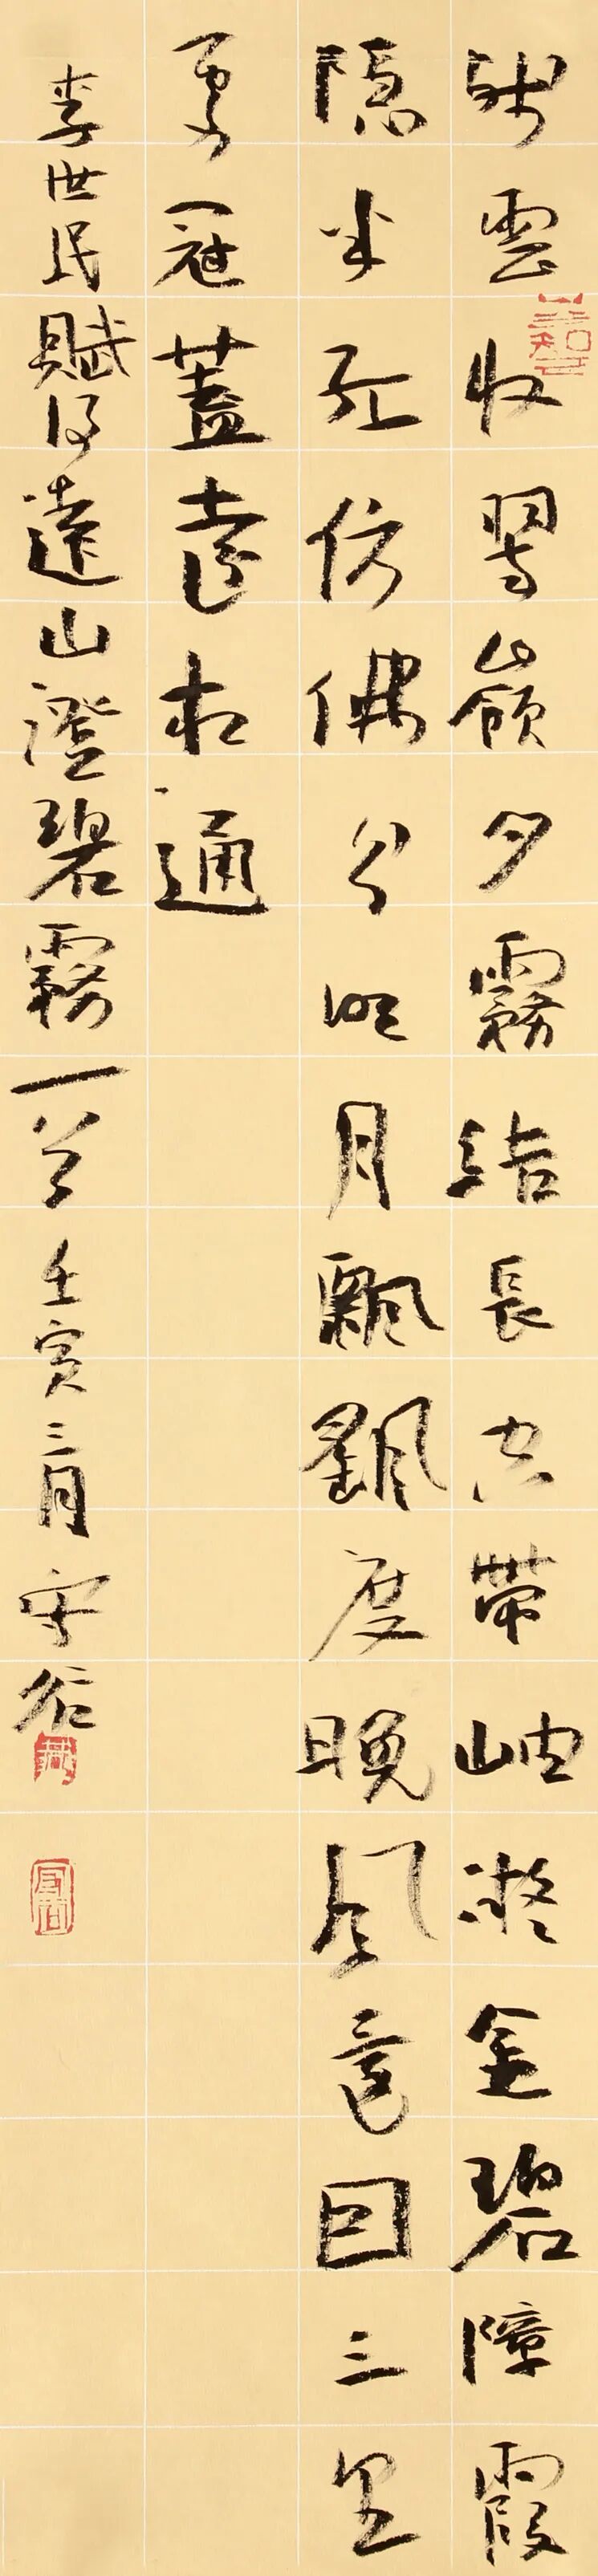 殘雲收翠嶺夕霧結長空帶岫凝全碧障霞
隱半紅仿佛分明月飄飖度晚風還因三里
處冠蓋遠相通
李世民賦得遠山澄碧霧一首壬寅三月守谷